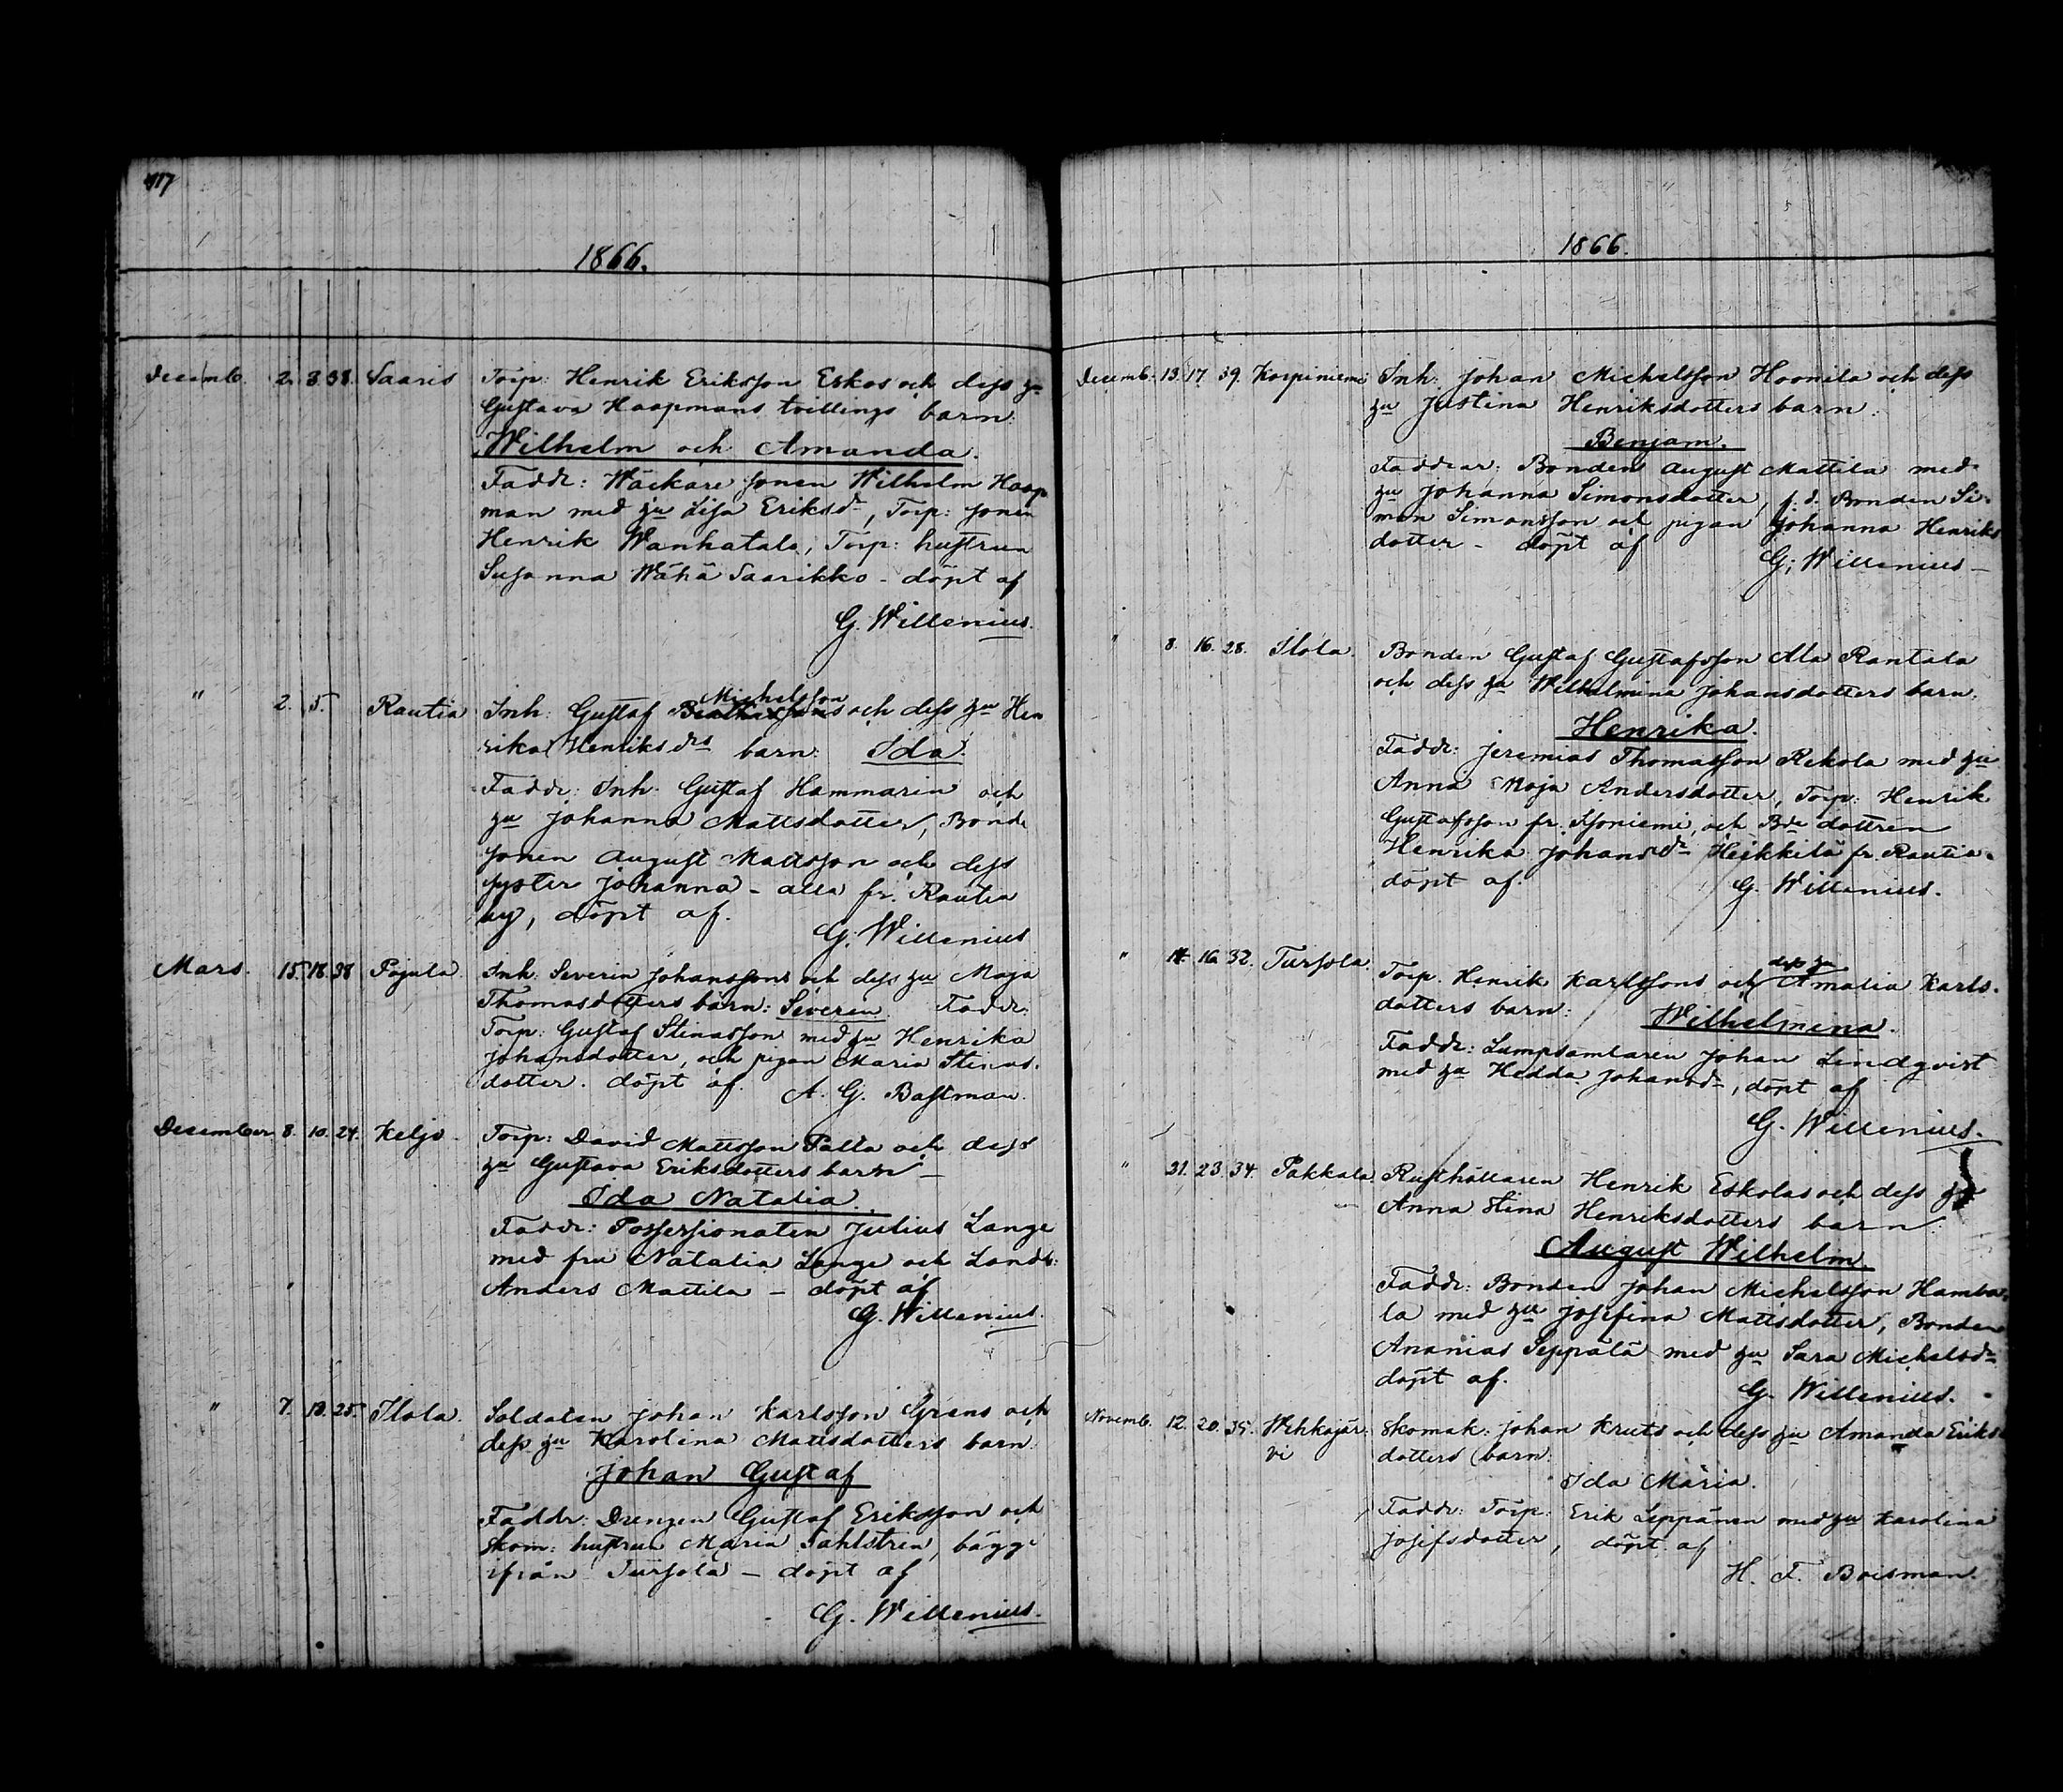 417
1866.
Decemb. 2. 3. 38. Saaris Torp: Henrik Eriksson Eskos och dess hu
Gustava Haapmans tvillings barn:
Wilhelm och Amanda.
Faddr: Wäckare sonen Wilhelm Haap
man med hu Lisa Eriksdr, Torp: sonen
Henrik Wanhatalo, Torp: hustrun
Susanna Wähä Saarikko - döpt af
G. Willenius.
" 2. 5. Rautia Inh: Gustaf Michelsson och dess hu Hen
rika Henriksdrs barn: Ida
Faddr: Inh. Gustaf Hammarin och
hu Johanna Mattsdotter, Bonde
sonen August Mattsson och dess
syster Johanna - alla fr. Rautia
by, döpt af.
G. Willenius
Mars. 15. 18. 38 Pajula. Inh. Severin Johanssons och dess hu Maja
Thomasdotters barn: Severin. Faddr:
Torp: Gustaf Stinasson med hu Henrika
Johansdotter, och pigan Maria Stinas.
dotter. döpt af. A. G. Bastman.
December 8. 10. 24. Keljo. Torp: David Mattsson Palla och dess
hu Gustava Eriksdotters barn -
Ida Natalia.
Faddr: Possessionaten Julius Lange
med fru Natalia Lange och Landb:
Anders Mattila - döpt af
G. Willenius.
" 7. 13. 25. Ilola. Soldaten Johan Karlsson Grens och
dess hu Karolina Mattsdotters barn
Johan Gustaf
Faddr: Drengen Gustaf Eriksson och
Skom: hustrun Maria Sahlstren, bägge
ifrån Tursola - döpt af
G. Willenius.
1866.
Decemb. 13. 17. 39. Korpiniemi Inh: Johan Michelsson Hoonila och dess
hu Justina Henriksdotters barn:
Benjam.
Faddrar: Bonden August Mattila med
hu Johanna Simonsdotter, f. d. Bonden Si-
mon Simonsson och pigan Johanna Henriks
dotter - döpt af
G. Willenius -
" 8. 16. 28. Ilola. Bonden Gustaf Gustafsson Ala Rantala
och dess hu Wilhelmina Johansdotters barn.
Henrika.
Faddr: Jeremias Thomasson Rekola med hu
Anna Maja Andersdotter, Torp: Henrik
Gustafsson fr. Isoniemi, och Bde dottren
Henrika Johansdr Heikkilä fr. Rautia.
döpt af. G. Willenius.
" 14. 16. 32. Tursola. Torp. Henrik Karlssons och dess hu Amalia Karls.
dotters barn: Wilhelmina.
Faddr: Lumpsamlaren Johan Lindqvist
med hu Hedda Johansdr, döpt af
G. Willenius.
" 21. 23. 34. Pakkala. Rusthållaren Henrik Eskolas och dess hu
Anna Stina Henriksdotters barn
August Wilhelm.
Faddr: Bonden Johan Michelsson Hamba
la med hu Josefina Mattsdotter, Bonden
Ananias Seppälä med hu Sara Michelsdr
döpt af. G. Willenius.
Novemb. 12. 20. 35. Wehkajär Skomak: Johan Kruts och dess hu Amanda Eriks
vi dotters barn:
Ida Maria.
Faddr: Torp: Erik Leppänen med hu Karolina
Josefsdotter, döpt af
H. F. Boisman.